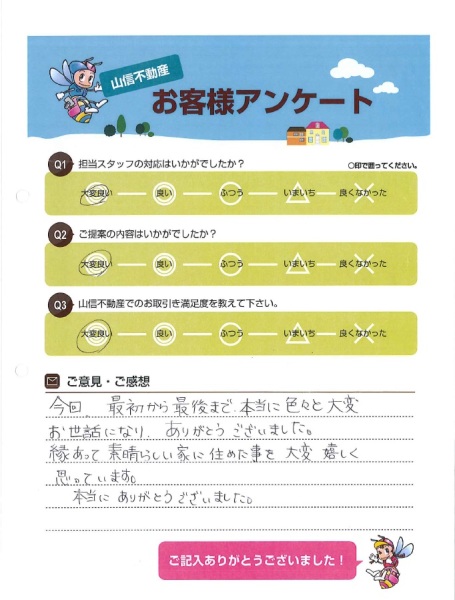 山信不動産
お客様アンケート
Q1 担当スタッフの対応はいかがでしたか？ ○印で囲ってください。
大変良い 良い ふつう いまいち 良くなかった
Q2 ご提案の内容はいかがでしたか？
大変良い 良い ふつう いまいち 良くなかった
Q3 山信不動産でのお取引き満足度を教えて下さい。
大変良い 良い ふつう いまいち 良くなかった
ご意見・ご感想
今回、最初から最後まで、本当に色々と大変
お世話になり、ありがとうございました。
縁あって素晴らしい家に住めた事を大変嬉しく
思っています。
本当にありがとうございました。
ご記入ありがとうございました！